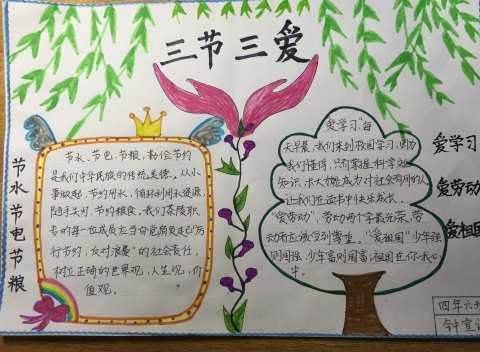 三节三爱
节水节电节粮
节水、节电、节粮,勤俭节约
是我们中华民族的传统美德。从小
事做起,节约用水,循环利用水资源
随手关灯,节约粮食,我们茶陵职
专的每一位成员应当自觉肩负起"厉
行节约,反对浪费"的社会责任,
树立正确的世界观,人生观,价
值观。
"爱学习"每
天早晨,我们来到校园学习,因为
我们懂得,只有掌握科学文
知识,长大才能成为对社会有用的人
让我们在读书中快乐成长。
"爱劳动",劳动两个字最光荣,劳
动而应该受到尊重。"爱祖国"少年强
则国强,少年富则国富,祖国在你我心
中。
爱学习
爱劳动
爱祖国
四年六
钟宣